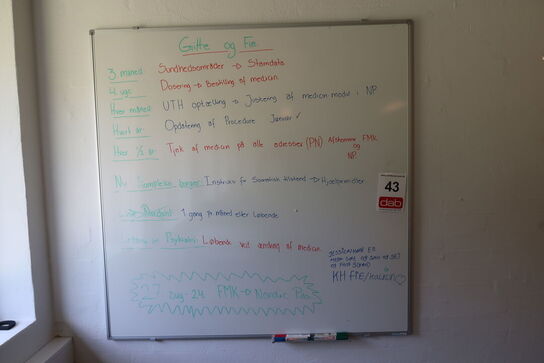 Gritte og Fie
3 måned: Sundhedsområder → Stamdata
4 uge: Dosering → Bestilling af medicin
Hver måned: UTH optælling → Justering af medicin modul i NP.
Hvert år: Opdatering af Procedure Januar ✓
Hver 1/2 år: Tjek af medicin på alle adresser (PN) Afstemme FMK og NP.
Ny Kompleks borger: Instruks for Somatisk tilstand → Hjælpemidler
1 gang pr måned eller Løbende.
Psykiatri: Løbende ved ændring af medicin
43
dab
KH FIE
27 aug-24 FMK → Nordic Pas